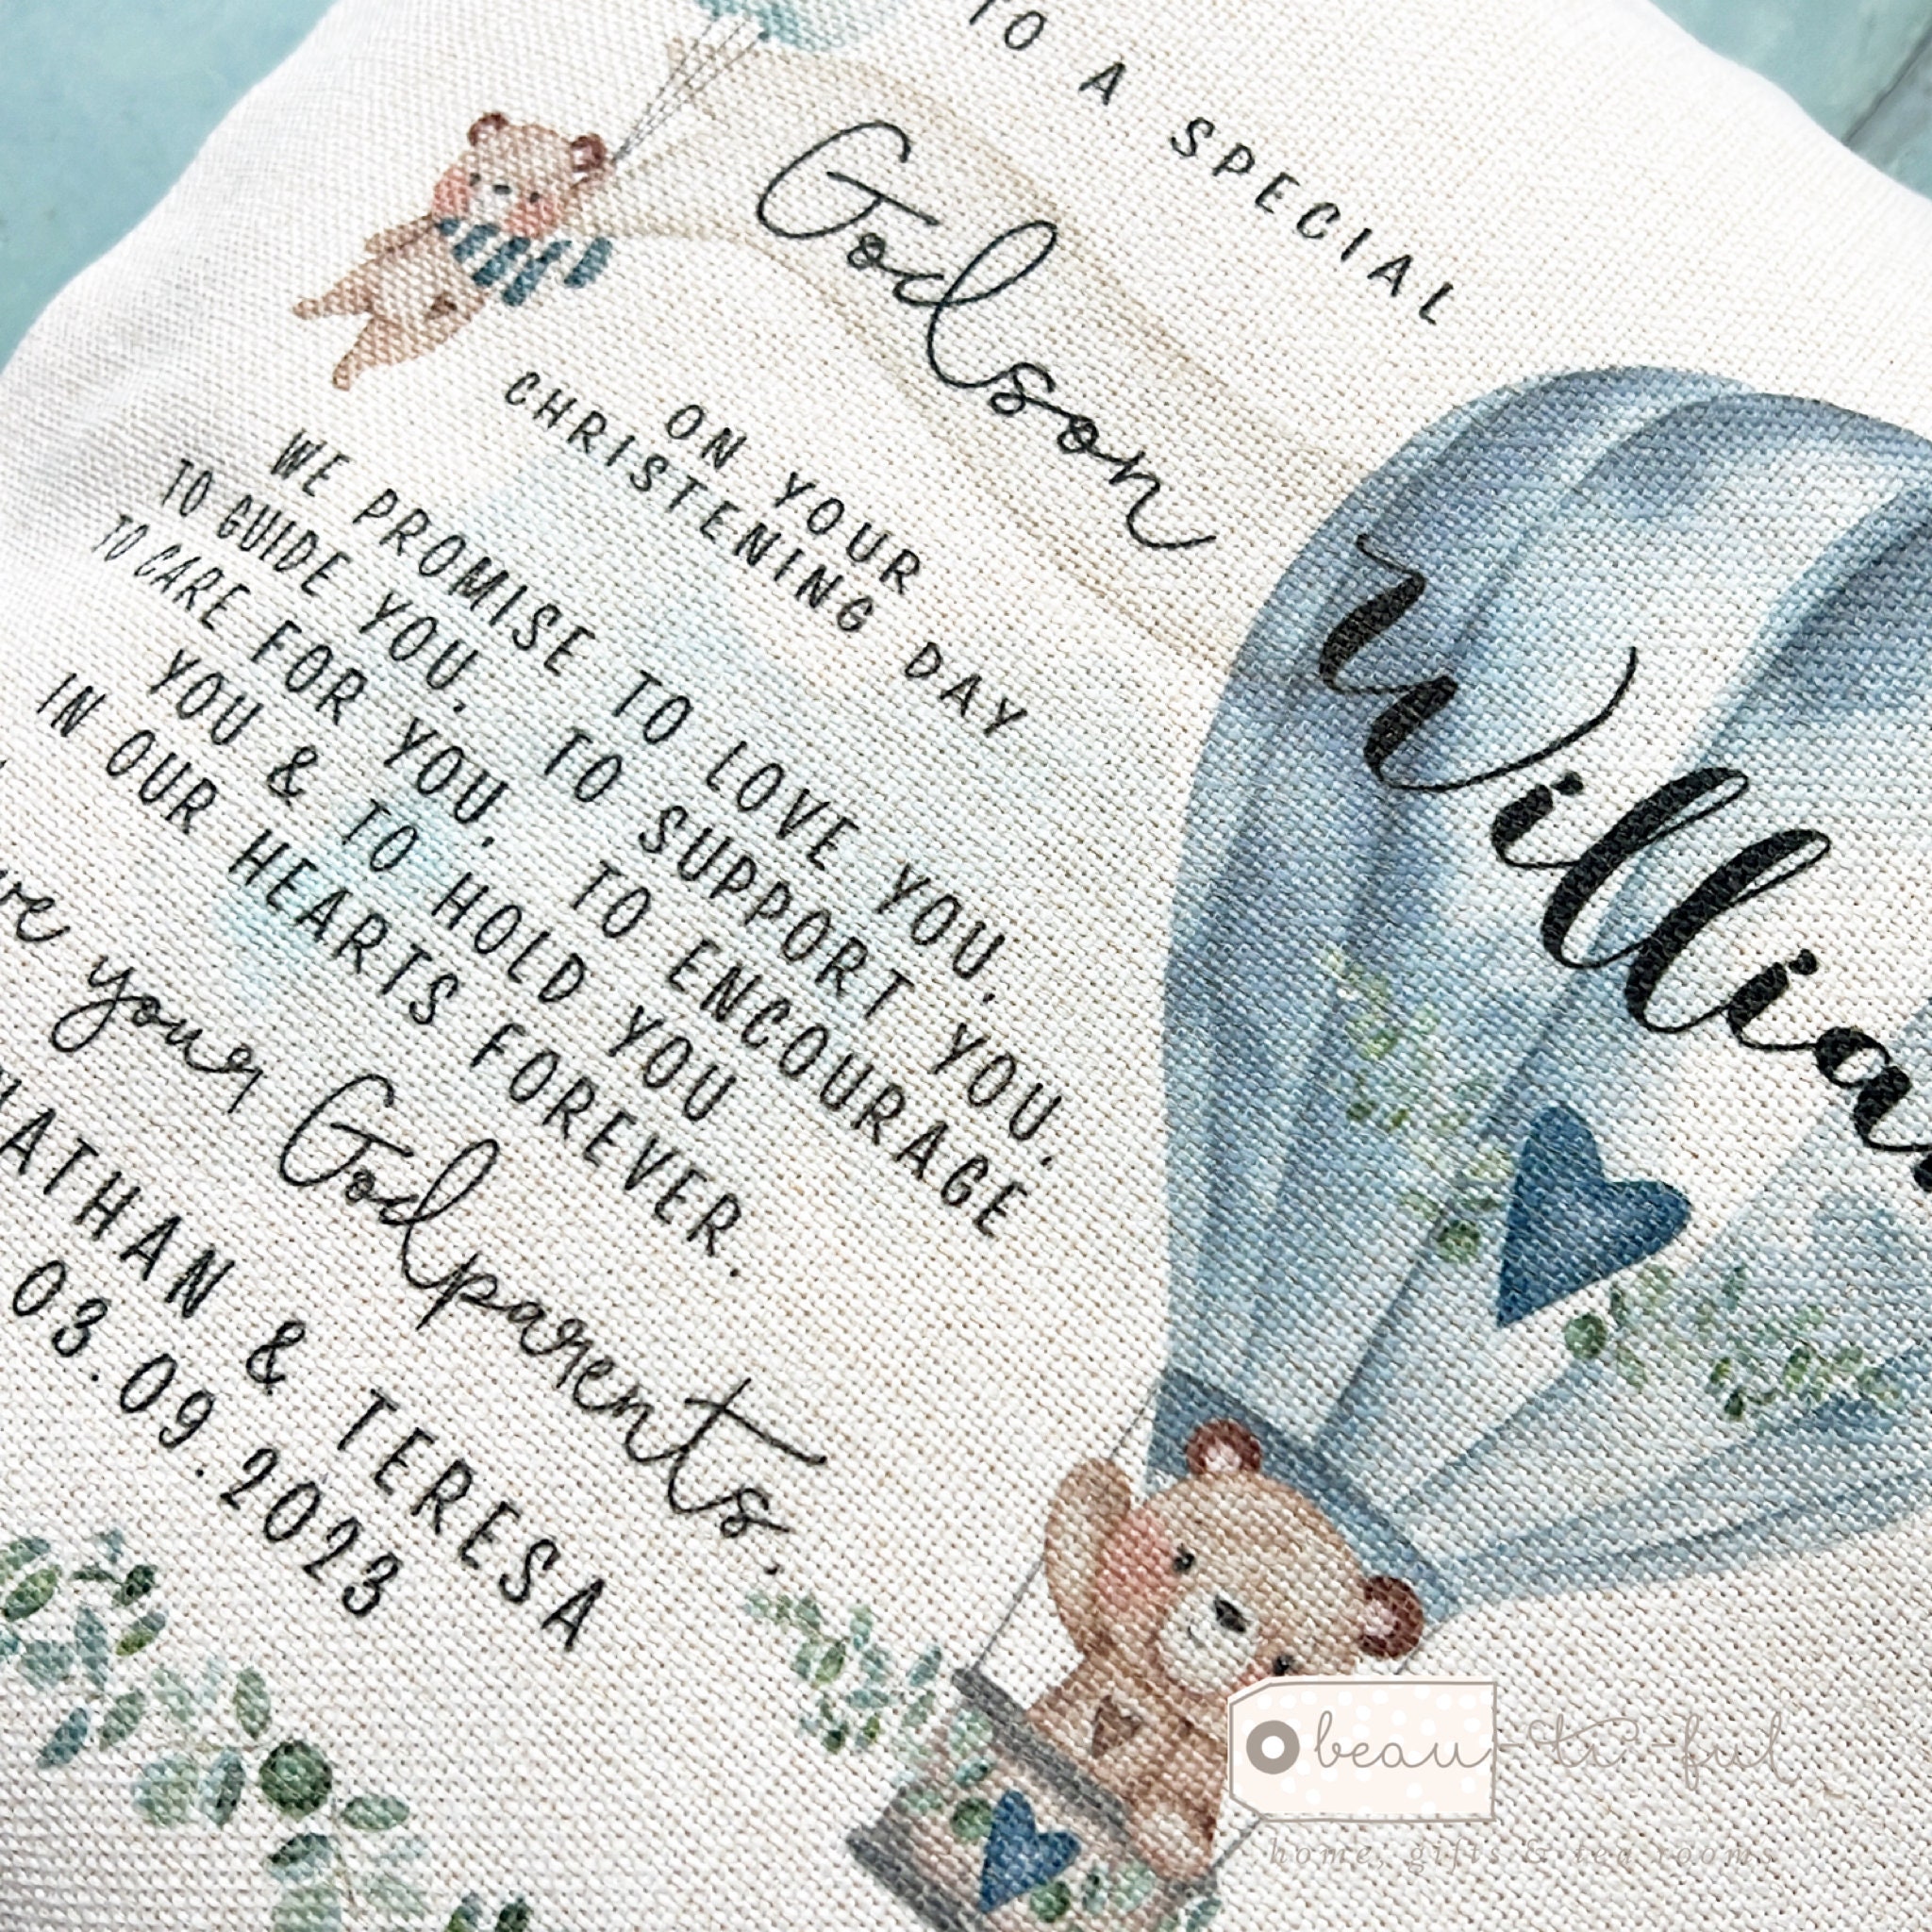 TO A SPECIAL
Godson
ON YOUR
CHRISTENING DAY
WE PROMISE TO LOVE YOU,
TO GUIDE YOU, TO SUPPORT YOU,
TO CARE FOR YOU, TO ENCOURAGE
YOU & TO HOLD YOU
IN OUR HEARTS FOREVER.
your Godparents.
& TERESA
03.09.2023
beau-ti-ful
home, gifts & tea rooms